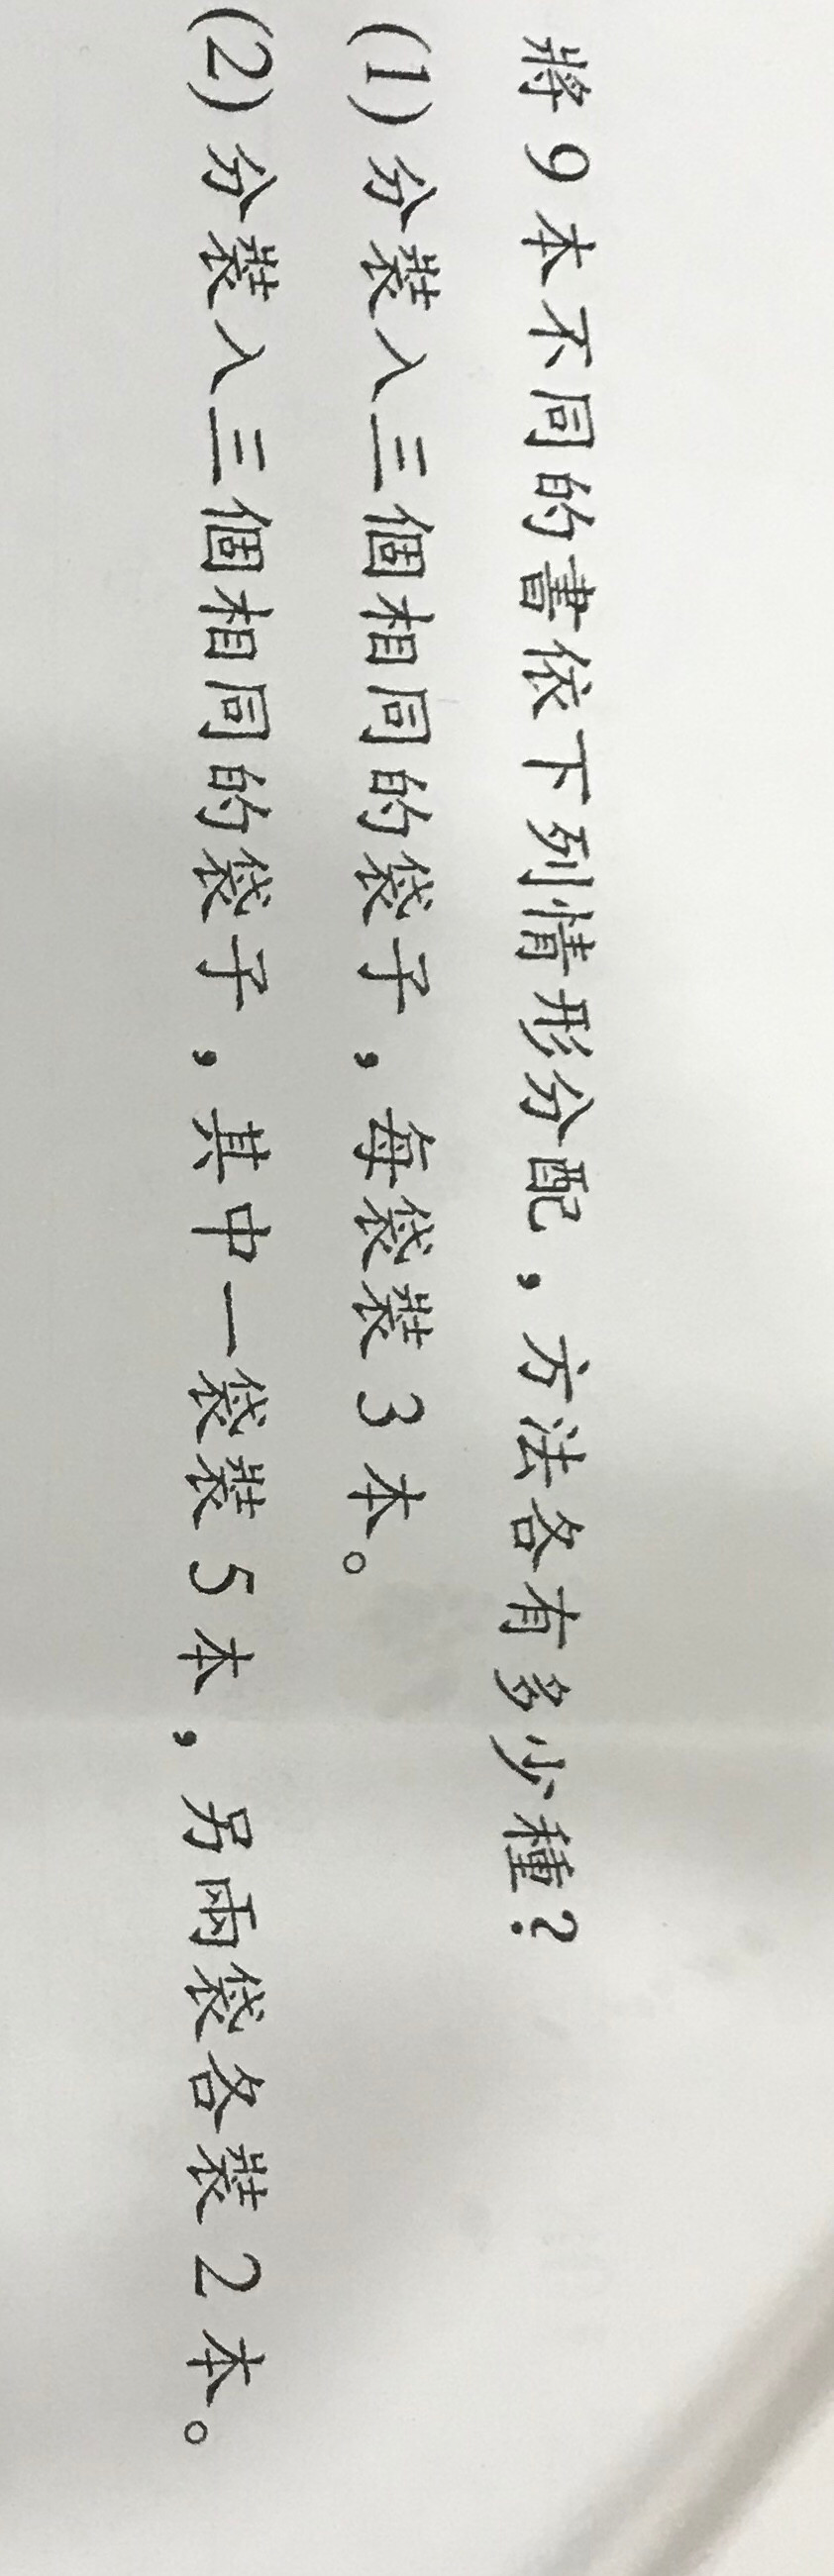 將9本不同的書依下列情形分配,方法各有多少種?
(1)分裝入三個相同的袋子,每袋裝3本。
(2)分裝入三個相同的袋子,其中一袋裝5本,另兩袋各裝2本。